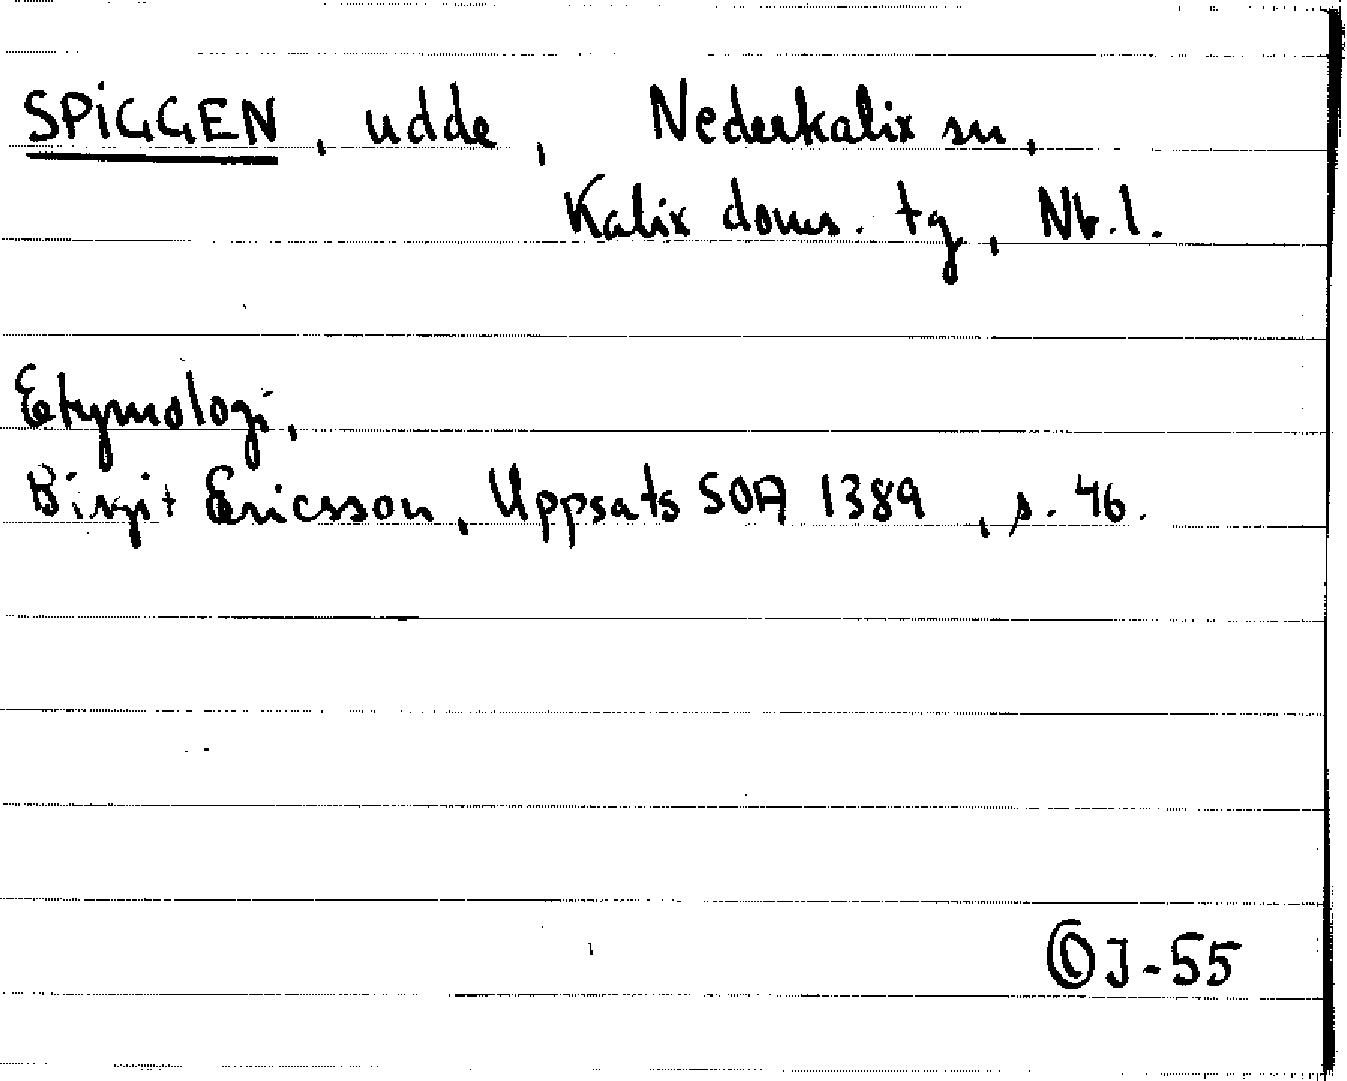 SPIGGEN, udde, Nederkalix sn,
Kalix doms. tg, Nb.l.
Etymologi,
Birgit Ericsson, Uppsats SOA 1389, s. 46.
J-55